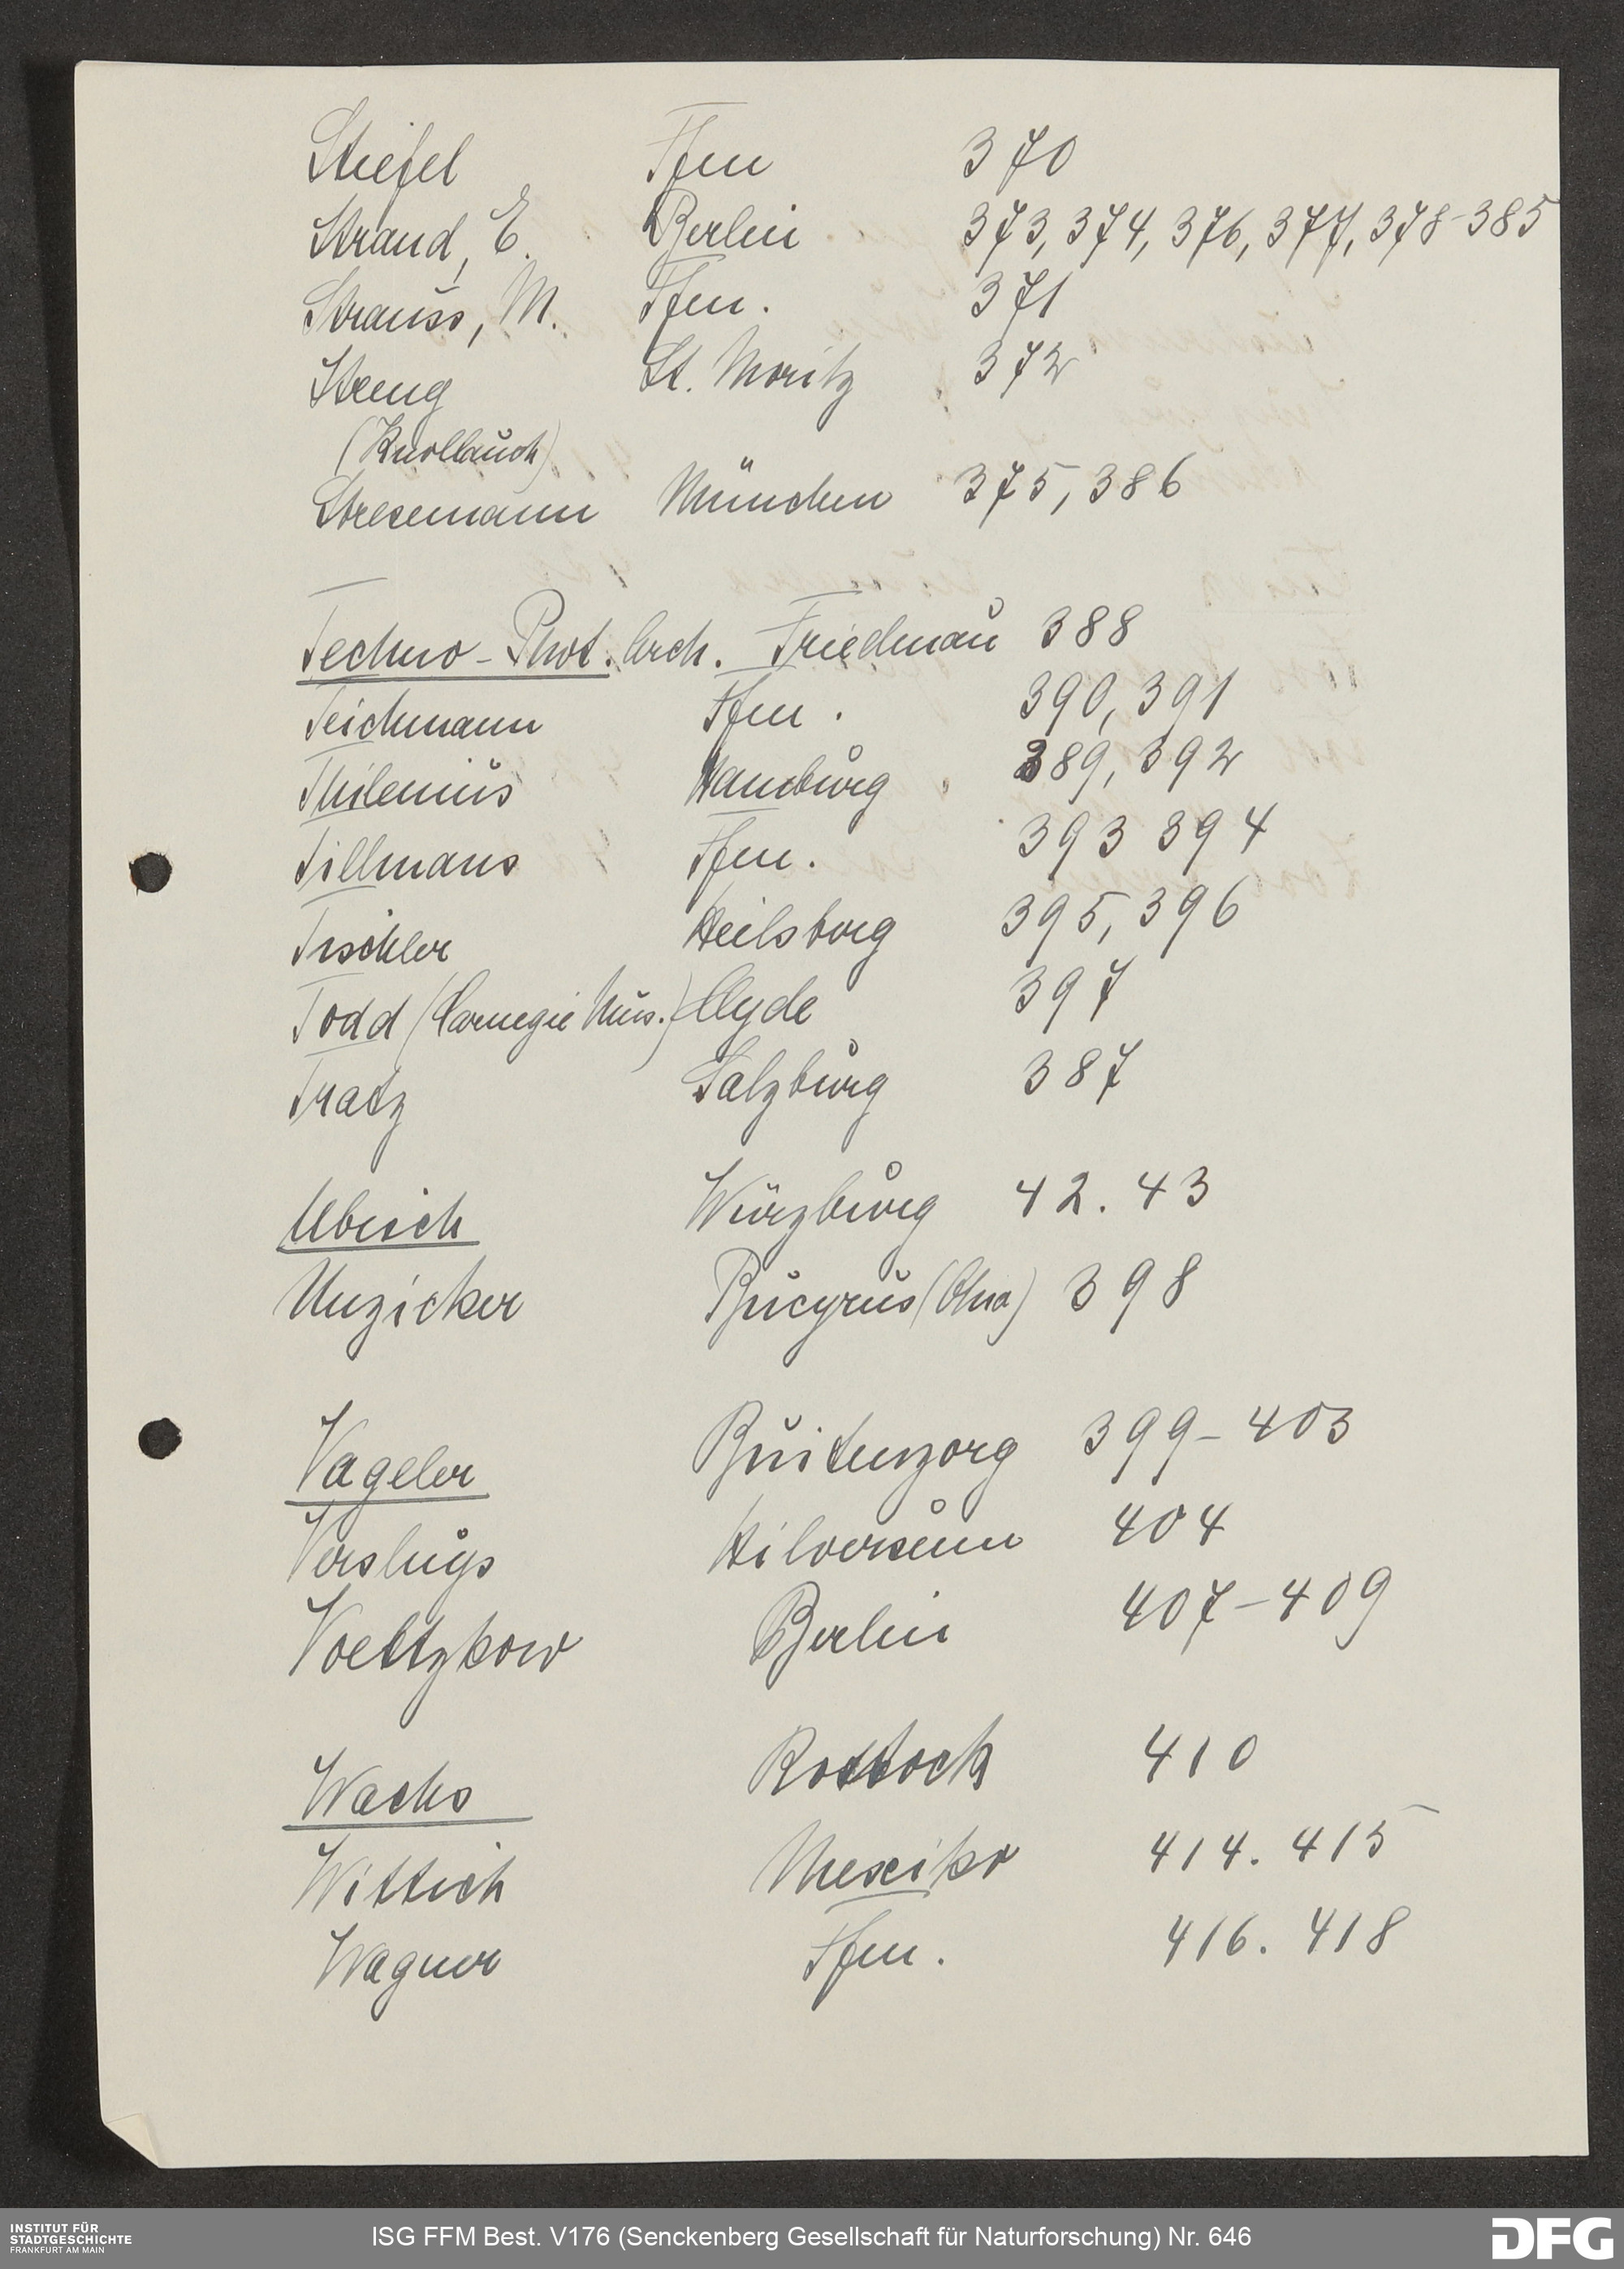 Stiefel Ffm 370
Strand, E. Berlin 373, 374, 376, 377, 378-385
Strauss, M. Ffm. 371
Streng St. Moritz 372
(Knoblauch)
Stresemann München 375, 386
Techno-Phot. Arch. Friedenau 388
Teichmann Ffm. 390, 391
Thilenius Hamburg 389, 392
Tillmans Ffm. 393 394
Tischler Heilsberg 395, 396
Todd (Carnegie Mus.) Clyde 397
Tratz Salzburg 387
Ubrich Würzburg 42. 43
Unzicker Bucyrus (Ohio) 398
Vageler Buitenzorg 399-403
Versluys Hilversum 404
Voeltzkow Berlin 407-409
Wachs Rostock 410
Wittich Mexiko 414. 415
Wagner Ffm. 416. 418
INSTITUT FÜR
STADTGESCHICHTE
FRANKFURT AM MAIN
ISG FFM Best. V176 (Senckenberg Gesellschaft für Naturforschung) Nr. 646
DFG